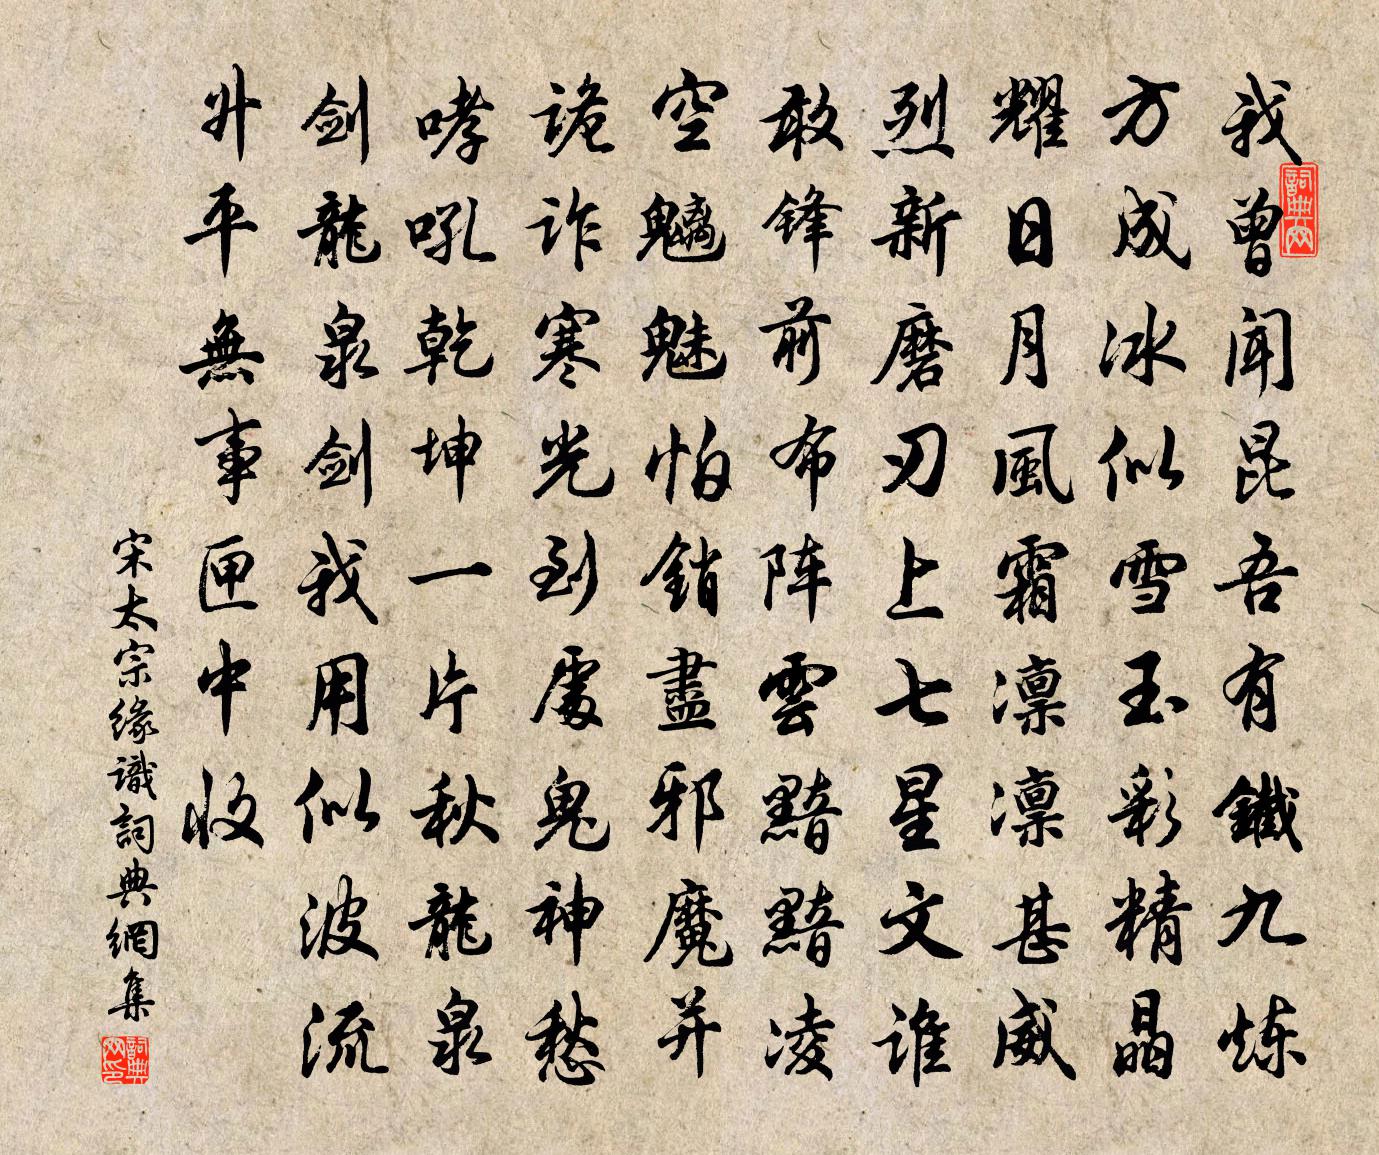 我曾聞昆吾有鐵九炼
方成冰似雪玉彩精晶
耀日月風霜凛凛甚威
烈新磨刃上七星文谁
敢锋前布阵雲黯黯凌
空魑魅怕銷盡邪魔并
詭诈寒光到處鬼神愁
哮吼乾坤一片秋龍泉
剑龍泉剑我用似波流
升平無事匣中收
宋太宗缘識詞典網集
詞典网
詞典网印